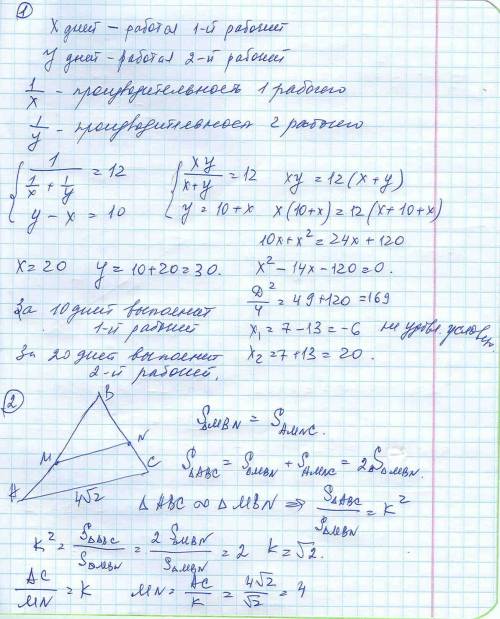 1
X дней – работал 1-й рабочий
У дней – работал 2-й рабочий
1/x – производительность 1 рабочего
1/y – производительность 2 рабочего
{ 1/(1/x + 1/y) = 12 { xy/(x+y) = 12 xy = 12(x+y)
y – x = 10 y = 10+x x(10+x) = 12(x+10+x)
10x+x² = 24x+120
x=20 y=10+20=30. x²–14x–120=0.
За 10 дней выполнит D²/4 = 49+120=169
1-й рабочий x₁=7–13=–6 не удовл. услов
За 20 дней выполнит x₂=7+13=20.
2-й рабочий.
2
B
M N
A C
4√2
S△MBN = SAMNC.
S△ABC = S△MBN + SAMNC = 2S△MBN.
△ABC ∞ △MBN ⇒ S△ABC/S△MBN = K²
K² = S△ABC/S△MBN = 2S△MBN/S△MBN = 2 K=√2.
AC/MN = K MN = AC/K = 4√2/√2 = 4